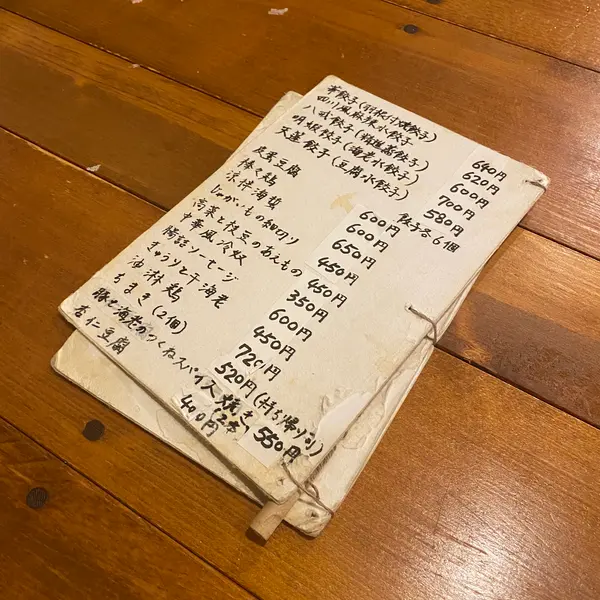 華餃子(羽根付焼餃子) 640円
四川風麻辣水餃子 620円
八戒餃子(精進蒸餃子) 600円
明姫餃子(海老水餃子) 700円
天蓬餃子(豆腐水餃子) 580円
餃子各6個
皮蛋豆腐 600円
棒々鶏 600円
涼拌海蜇 650円
じゃがいもの細切り 450円
高菜と枝豆のあえもの 450円
中華風冷奴 350円
腸詰ソーセージ 600円
きゅうりと干海老 450円
油淋鶏 720円
ちまき(2個) 520円(持ち帰り可)
豚と海老のつくねスパイス焼き 2本 550円
杏仁豆腐 400円